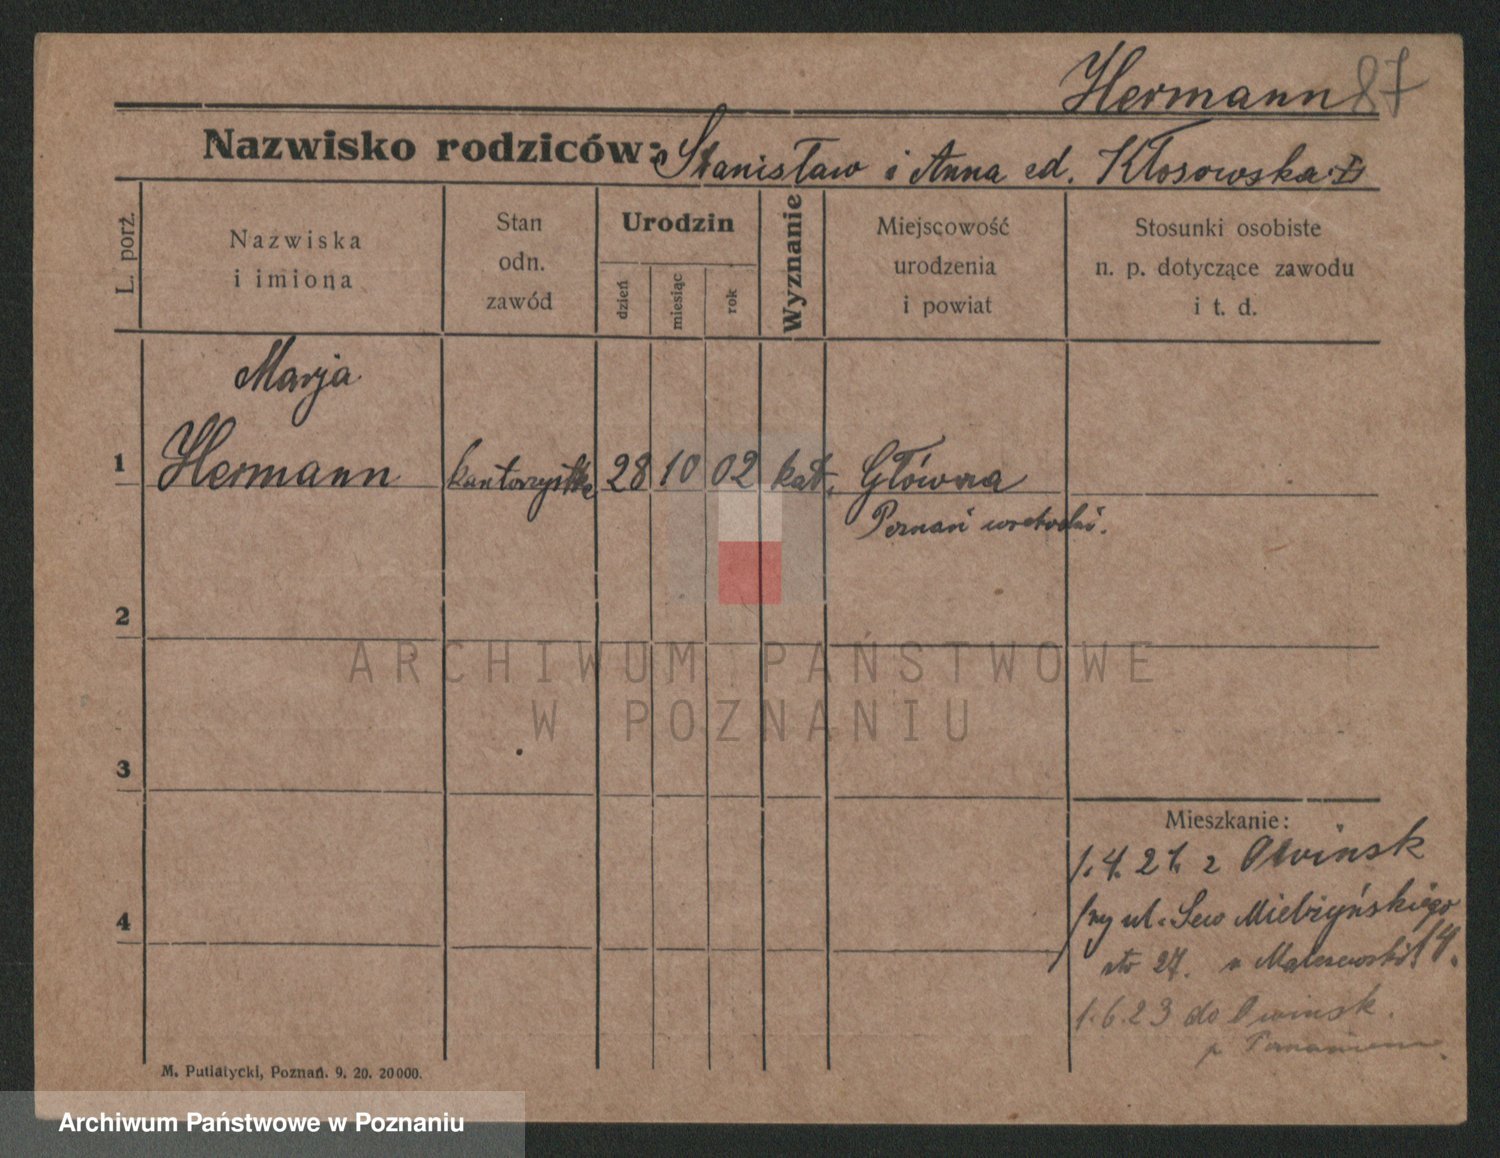 Hermann 87
Nazwisko rodziców: Stanisław i Anna Kłosowska
L. porź.
Nazwiska
i imiona
Stan
odn.
zawód
Urodzin
dzień
miesiąc
rok
Wyznanie
Miejscowość
urodzenia
i powiat
Stosunki osobiste
n. p. dotyczące zawodu
i t. d.
Marja
1 Hermann kantorzystka 28 10 02 kat. Główna
Poznań wschodni.
2
3
4
Mieszkanie:
1.4.21. z Owinsk
ul. Sew Mielżyńskiego
27. 14.
1.6.23 do Owinsk.
M. Putiatycki, Poznań. 9. 20. 20000.
ARCHIWUM PAŃSTWOWE
W POZNANIU
Archiwum Państwowe w Poznaniu